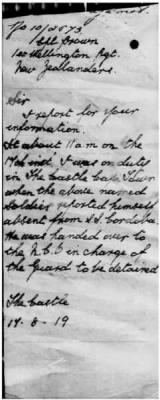 No 10/2573.
Cpl Brown
1st Wellington Rgt.
New Zealanders.
Sir
I report for your
information.
At about 11 am on the
17th inst. I was on duty
in The Castle Cape Town
when the above named
Soldier reported himself
absent from S.S. Cordoba.
He was handed over to
the N.C.O in charge of
the Guard to be detained
The Castle
17-8-19